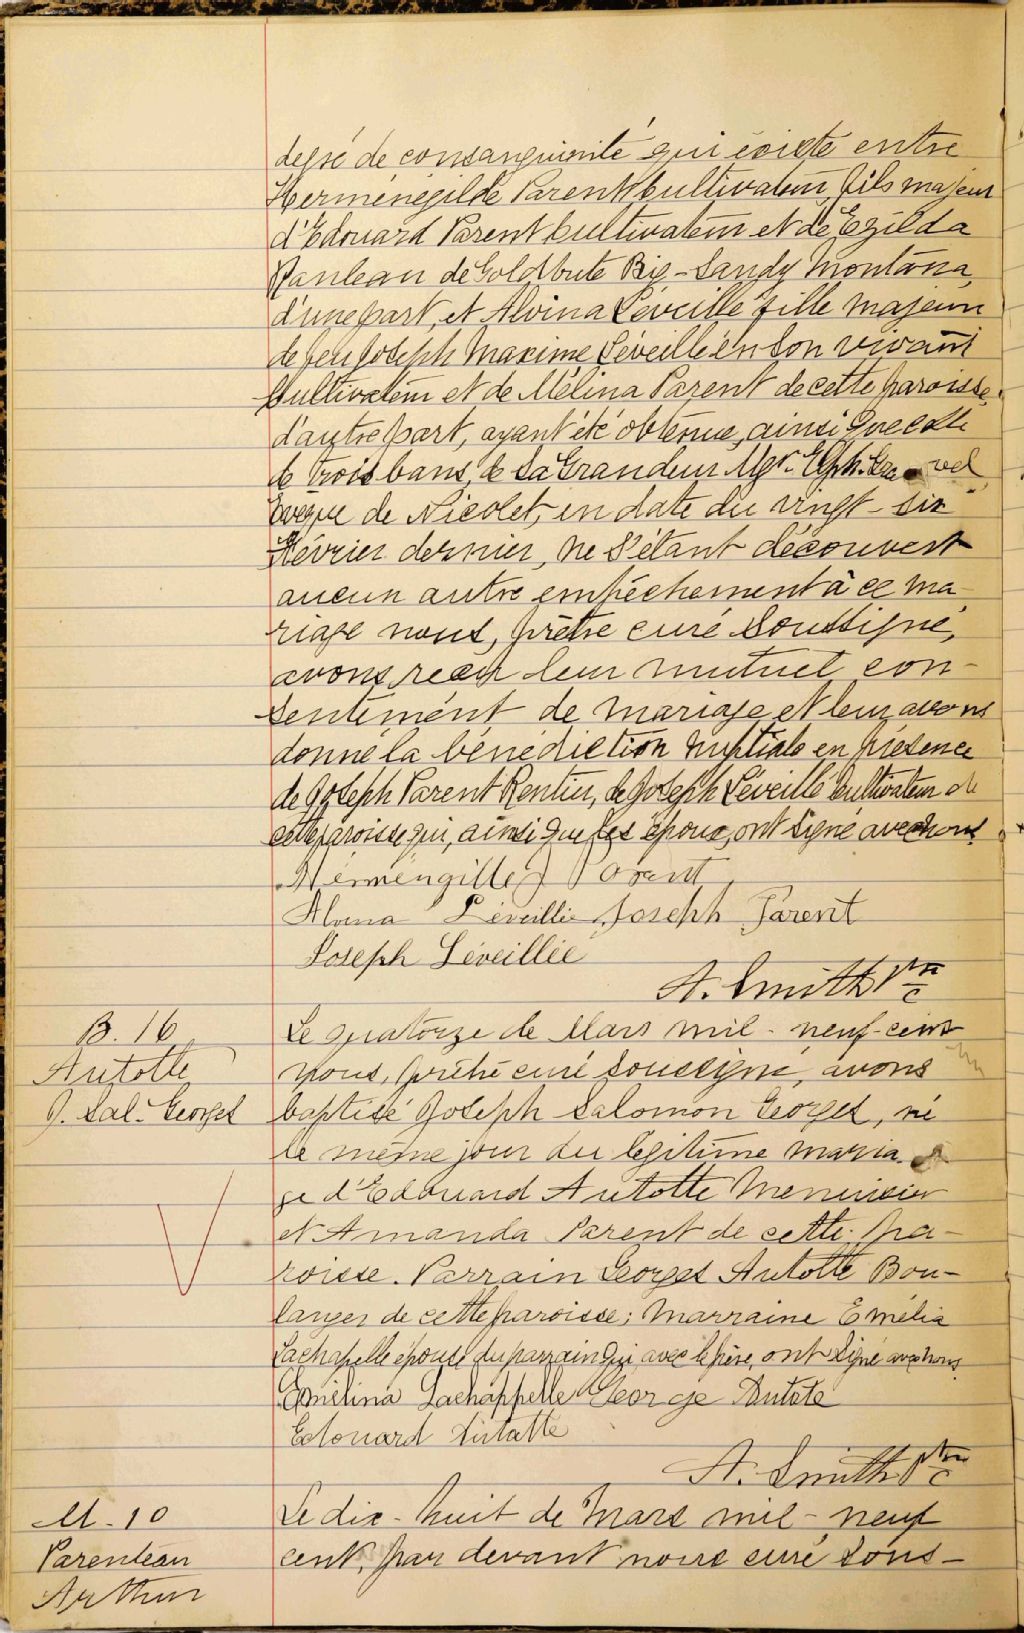 degré de consanguinité qui existe entre
Herménégilde Parent cultivateur, fils majeur
d'Edouard Parent cultivateur et de Exilda
de Goldbute Big-Sandy Montana,
d'une part, et Alvina Léveillé fille majeure
de feu Joseph Maxime Léveillé en son vivant
cultivateur et de Mélina Parent de cette paroisse,
d'autre part, ayant été obtenue, ainsi que celle
de trois bans, de Sa Grandeur Mgr. Elph. Gravel
Evêque de Nicolet, en date du vingt-six
Février dernier, ne s'étant découvert
aucun autre empêchement à ce ma-
riage nous, prêtre curé soussigné,
avons reçu leur mutuel con-
sentement de mariage et leur avons
donné la bénédiction nuptiale en présence
de Joseph Parent Rentier, de Joseph Léveillé cultivateur de
cette paroisse qui, ainsi que les époux, ont signé avec nous.
Hermengille J Parent
Alvina Léveillée Joseph Parent
Joseph Léveillée
A. Smith Ptre
c
B. 16
Autotte
J. Sal. Georges
Le quatorze de Mars mil-neuf-cent
nous, prêtre curé soussigné, avons
baptisé Joseph Salomon Georges, né
le même jour du légitime maria-
ge d'Edouard Autotte Menuisier
et Amanda Parent de cette pa-
roisse. Parrain Georges Autotte Bou-
langer de cette paroisse; Marraine Emélia
Lachapelle épouse du parrain qui, avec le père, ont signé avec nous.
Emélina Lachappelle George Autote
Edouard Autatte
A. Smith Ptre
c
M-10
Parenteau
Arthur
Le dix-huit de Mars mil-neuf
cent, par devant nous curé sous-